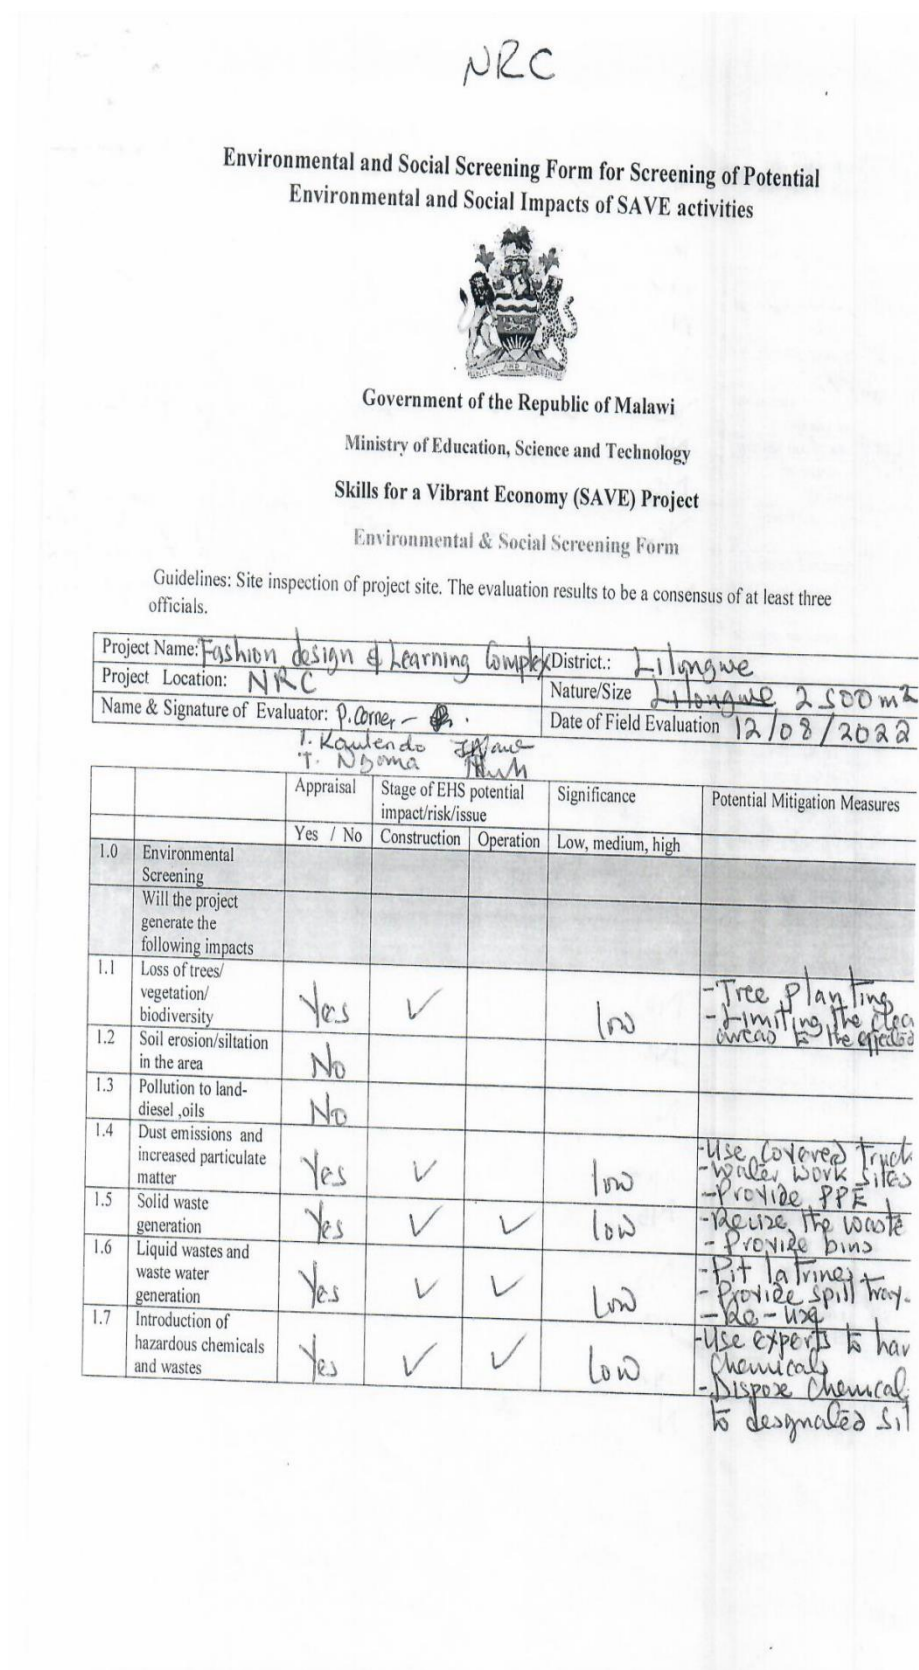 NRC
Environmental and Social Screening Form for Screening of Potential
Environmental and Social Impacts of SAVE activities
Government of the Republic of Malawi
Ministry of Education, Science and Technology
Skills for a Vibrant Economy (SAVE) Project
Environmental & Social Screening Form
Guidelines: Site inspection of project site. The evaluation results to be a consensus of at least three
officials.
Project Name: Fashion design & Learning Complex District.: Lilongwe
Project Location: NRC Nature/Size Lilongwe 2500m²
Name & Signature of Evaluator: P. Corner Date of Field Evaluation 12/08/2022
T. Kaulendo
T. Ngoma
Appraisal Stage of EHS potential Significance Potential Mitigation Measures
impact/risk/issue
Yes / No Construction Operation Low, medium, high
1.0 Environmental
Screening
Will the project
generate the
following impacts
1.1 Loss of trees/
vegetation/
biodiversity Yes ✓ low -Tree planting
-Limiting the clea
areas to the affected
1.2 Soil erosion/siltation
in the area No
1.3 Pollution to land-
diesel ,oils No
1.4 Dust emissions and
increased particulate
matter Yes ✓ low -Use covered truck
-Water work sites
-Provide PPE
1.5 Solid waste
generation Yes ✓ ✓ low -Reuse the waste
- Provide bins
1.6 Liquid wastes and
waste water
generation Yes ✓ ✓ Low -Pit latrines
- Provide spill tray.
- Re-use
1.7 Introduction of
hazardous chemicals
and wastes Yes ✓ ✓ Low -Use experts to han
chemicals
-Dispose chemical
to designated sit